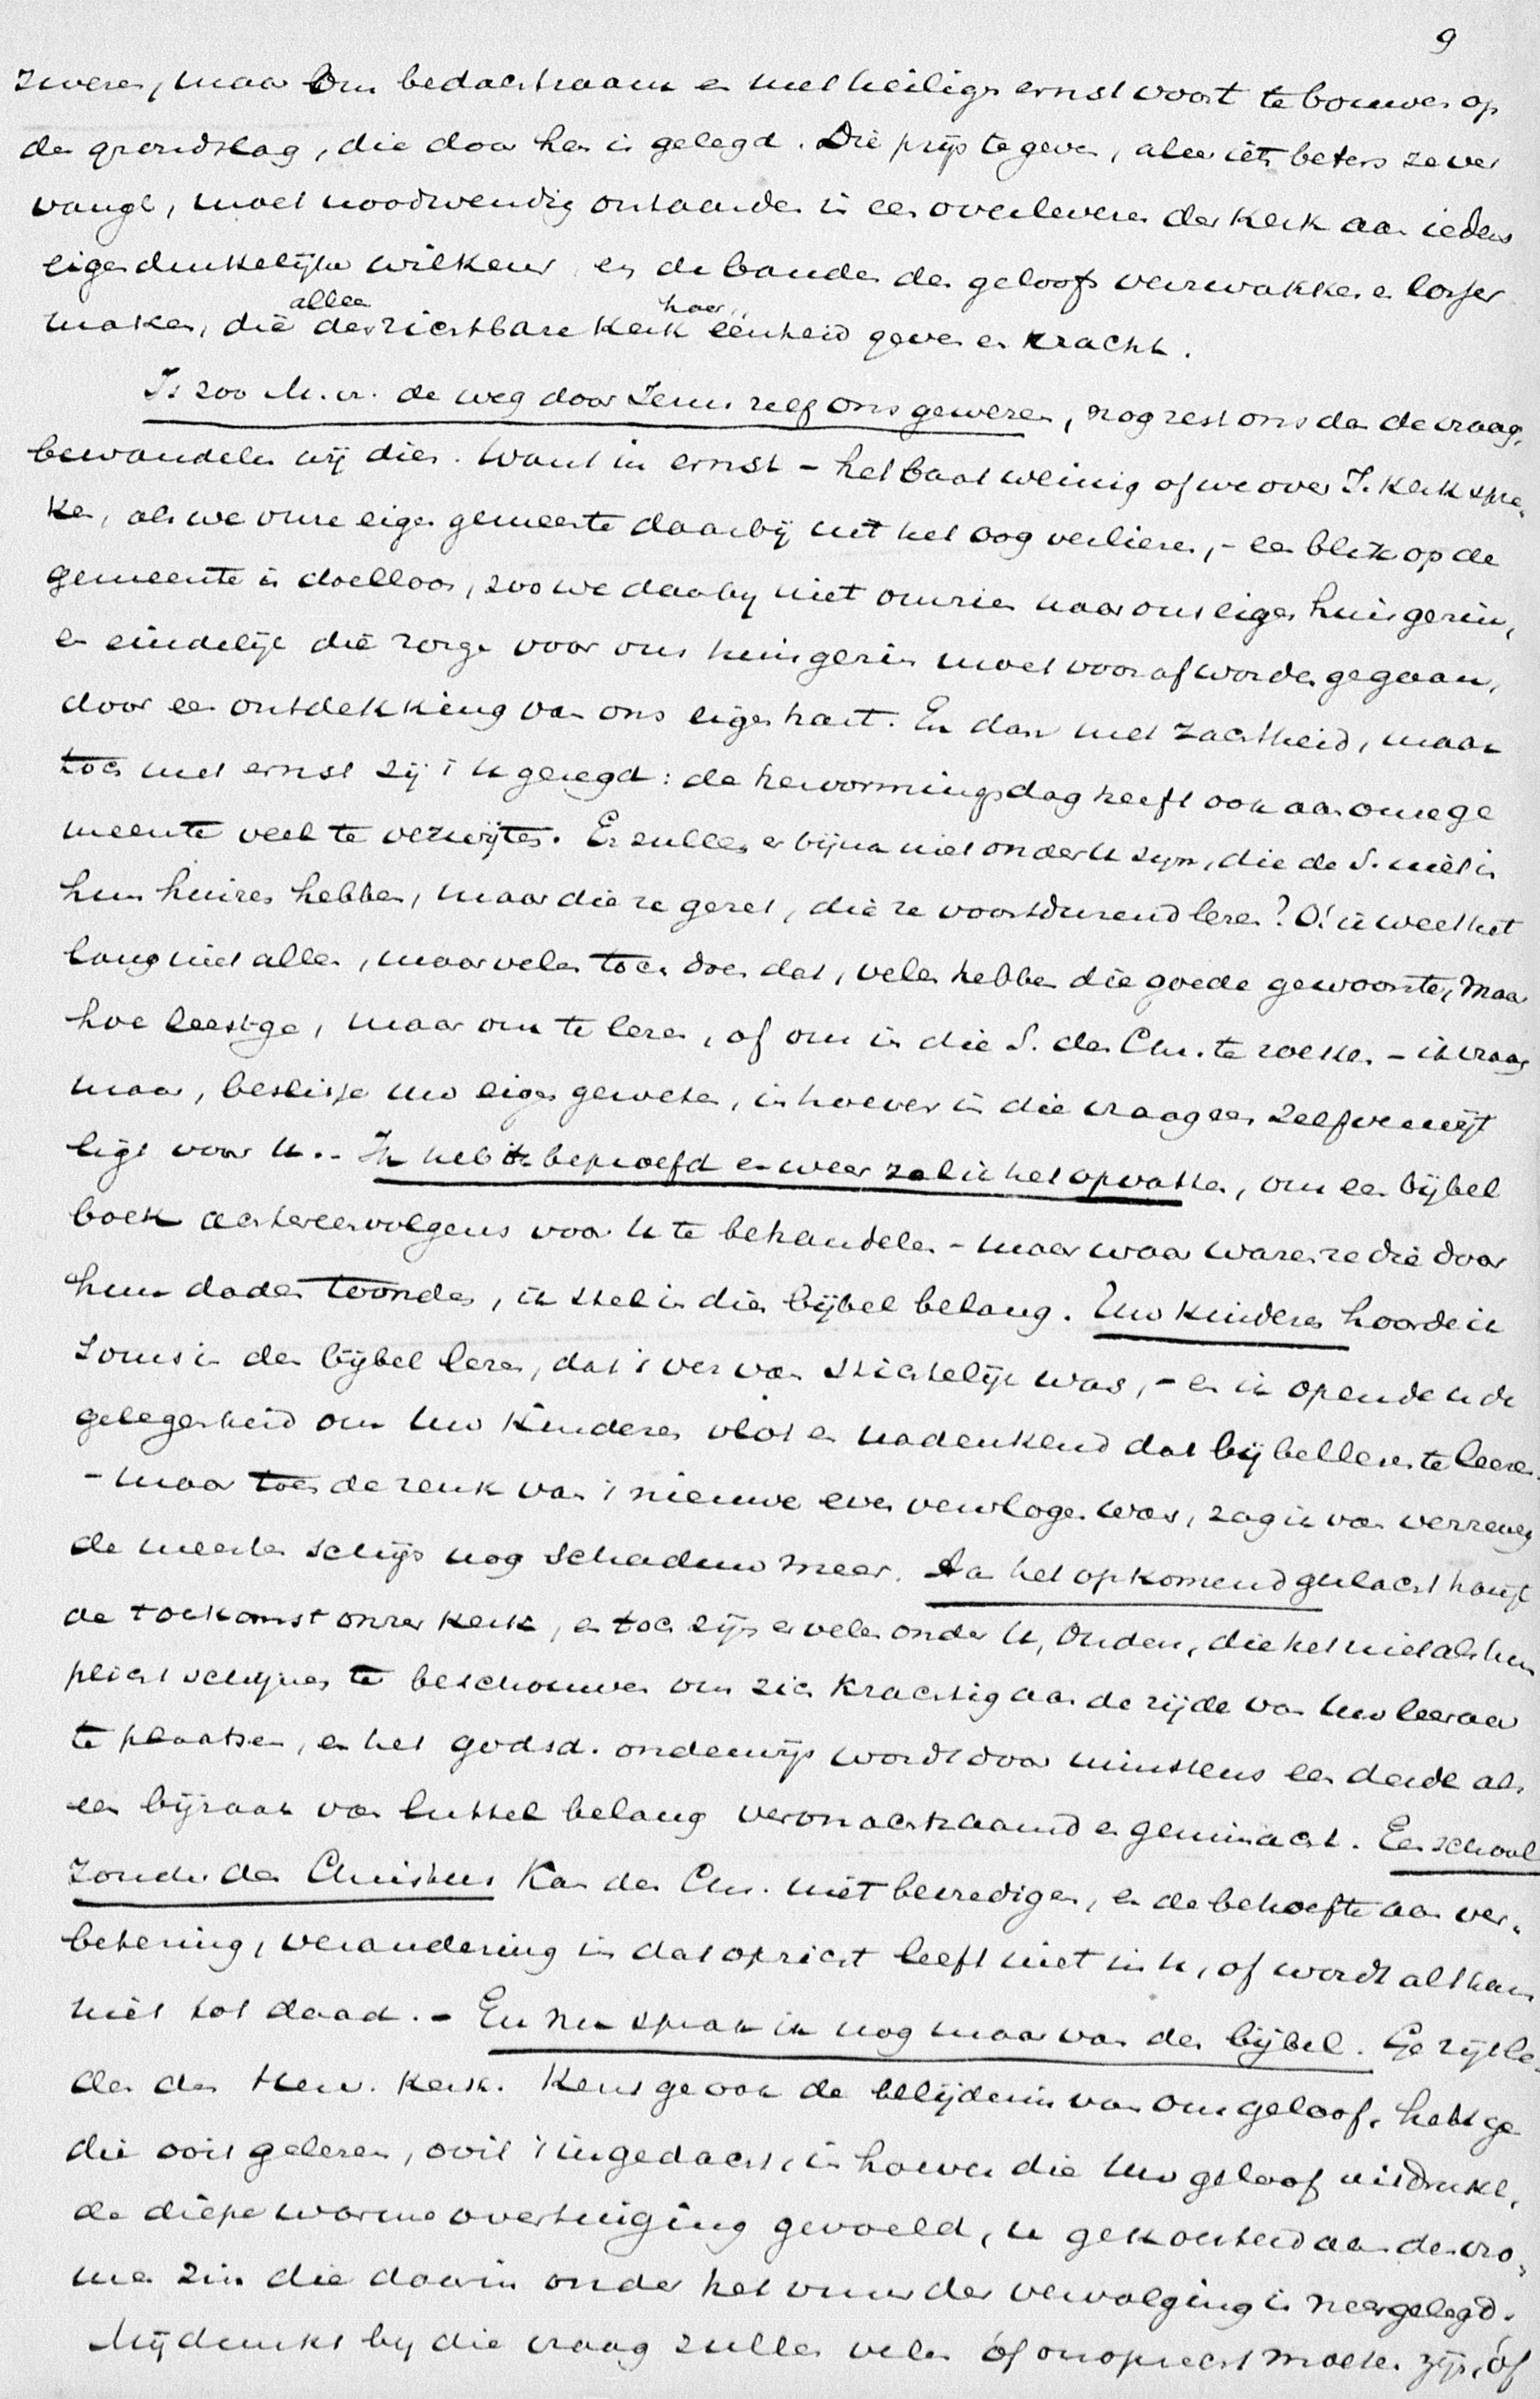 9
zweren, maar om bedachtzaam en met heiligen ernst voort te bouwen op
den grondslag, die door hen is gelegd. Die prijs te geven, aleer iets beters ze ver
vangt, moet noodwendig ontaarden in een overleveren der Kerk aan ieders
eigendunkelijke willekeur en de banden des geloofs verzwakken en losser
alleen haar
maken, die der zichtbare Kerk eenheid geven en kracht.
Is zoo M. v. de weg door Jezus zelf ons gewezen, nog rest ons dan de vraag,
bewandelen wij dien. Want in ernst - het baat weinig of we over J. Kerk spre-
ken, als we onze eigen gemeente daarbij uit het oog verliezen, - een blik op de
gemeente is doelloos, zoo we daarbij niet omzien naar ons eigen huisgezin,
en eindelijk die zorge voor ons huisgezin moet voorafworden gegaan,
door een ontdekking van ons eigen hart. En dan met zachtheid, maar
toch met ernst zij 't u gezegd: de hervormingsdag heeft ook aan onze ge
meente veel te verwijten. Er zullen er bijna niet onder U zijn, die de S. niet in
hun huizen hebben, maar die ze gezet, die ze voortdurend lezen? O! ik weet het
lang niet allen, maar velen toch doen dat, velen hebben die goede gewoonte, maar
hoe leest ge, maar om te lezen, of om in die S. den Chr. te zoeken - ik vraag
maar, beslisse uw eigen geweten, in hoever in die vraag een zelfverwijt
ligt voor U. - Ik heb 't beproefd en weer zal ik het opvatten, om een bijbel
boek achtereenvolgens voor U te behandelen - maar waar waren ze die door
hun daden toonden, ik stel in dien bijbel belang. Uw kinderen hoorde ik
soms in den bijbel lezen, dat 't ver van stichtelijk was, - en ik opende u de
gelegenheid om Uw kinderen vlot en nadenkend dat bijbellezen te leeren
- maar toen de reuk van 't nieuwe even vervlogen was, zag ik van verreweg
de meesten schijn nog schaduw meer. Aan het opkomend geslacht hangt
de toekomst onzer Kerk, en toch zijn er velen onder U, Ouden, die het niet als hun
plicht schijnen te beschouwen om zich krachtig aan de zijde van Uw leeraar
te plaatsen, en het godsd. onderwijs wordt door minstens een derde als
een bijzaak van luttel belang veronachtzaamd en geminacht. Een school
zonder den Christus kan den Chr. niet bevredigen, en de behoefte aan ver-
betering, verandering in dat opzicht leeft niet in U, of wordt althans
niet tot daad. - En nu sprak ik nog maar van den bijbel. Ge zijt le-
den der Herv. Kerk. Kent ge ook de belijdenis van ons geloof, hebt ge
die ooit gelezen, ooit 't ingedacht, in hoever die Uw geloof uitdrukt,
de diepe warme overtuiging gevoeld, u gekoesterd aan den vro-
men zin die daarin onder het vuur der vervolging is neergelegd.
Mij dunkt bij die vraag zullen velen óf onoprecht moeten zijn, óf